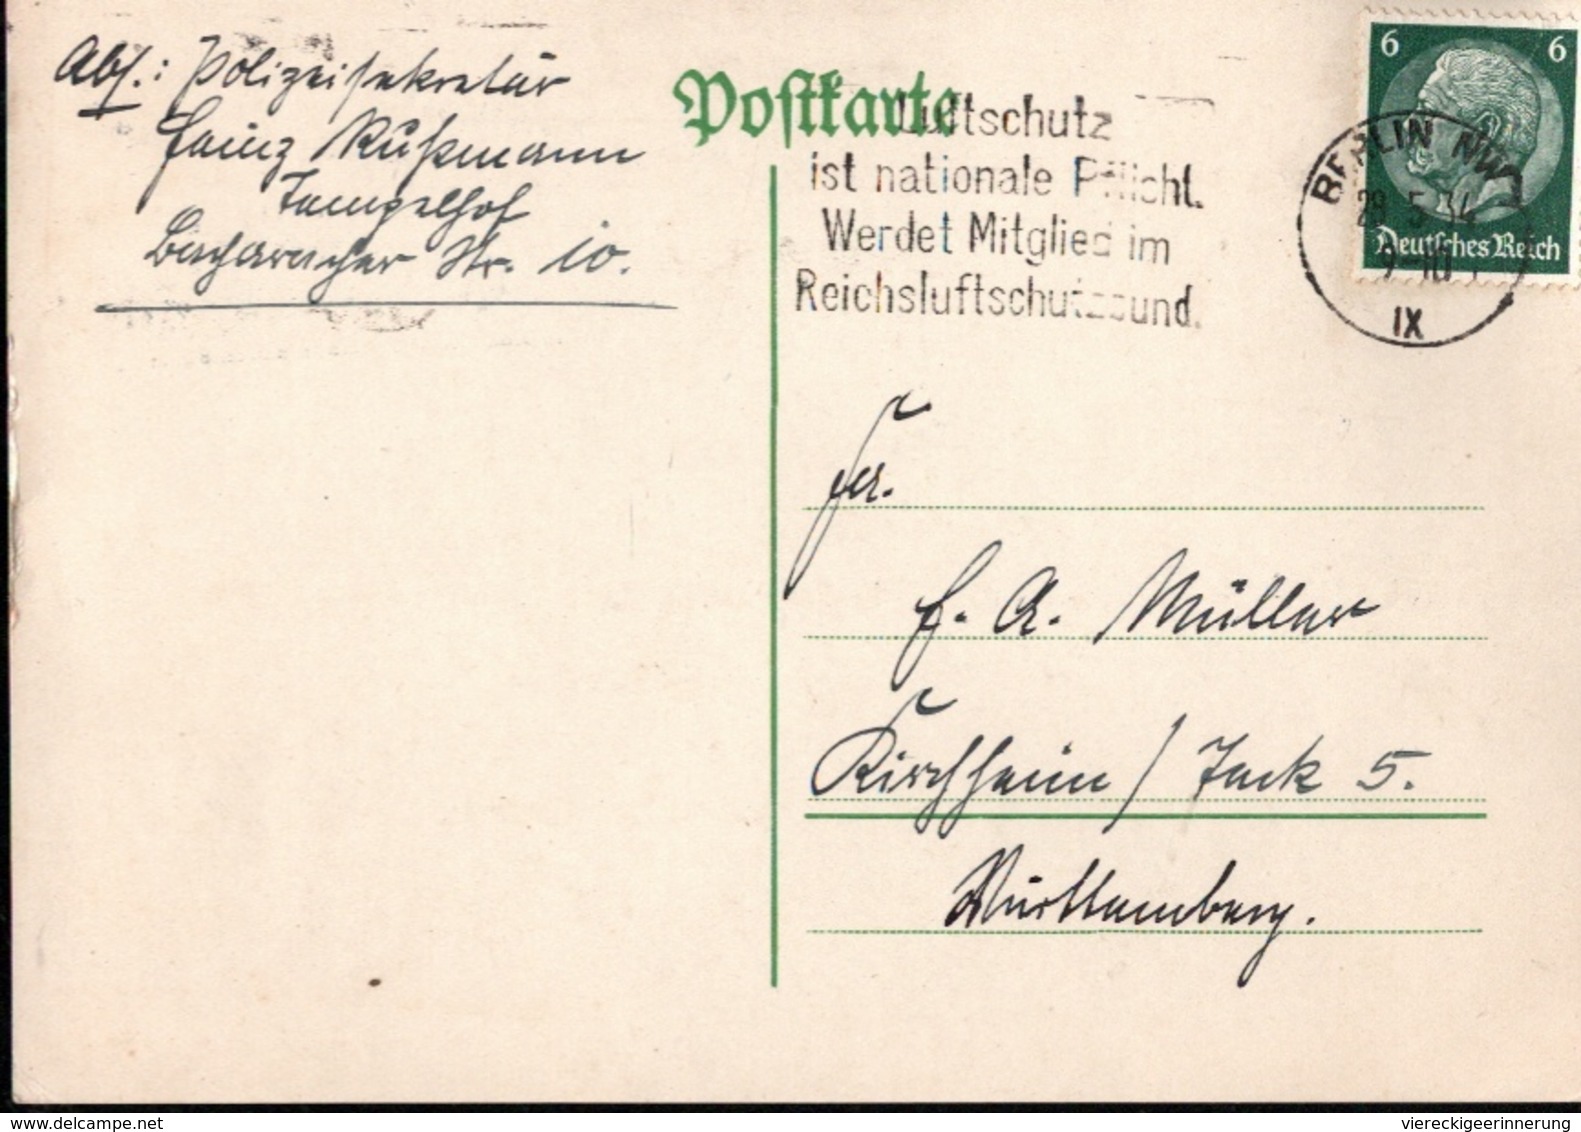 Abs.: Polizeisekretär
Heinz Rußmann
Tempelhof
Bacharacher Str. 10.
Postkarte
Luftschutz
ist nationale Pflicht.
Werdet Mitglied im
Reichsluftschutzbund.
6 6
Deutsches Reich
BERLIN NW 7
29.5.34
9-10
IX
Fa.
E. A. Müller
Kirchheim / Teck 5.
Württemberg.
delcampe.net
viereckigeerinnerung